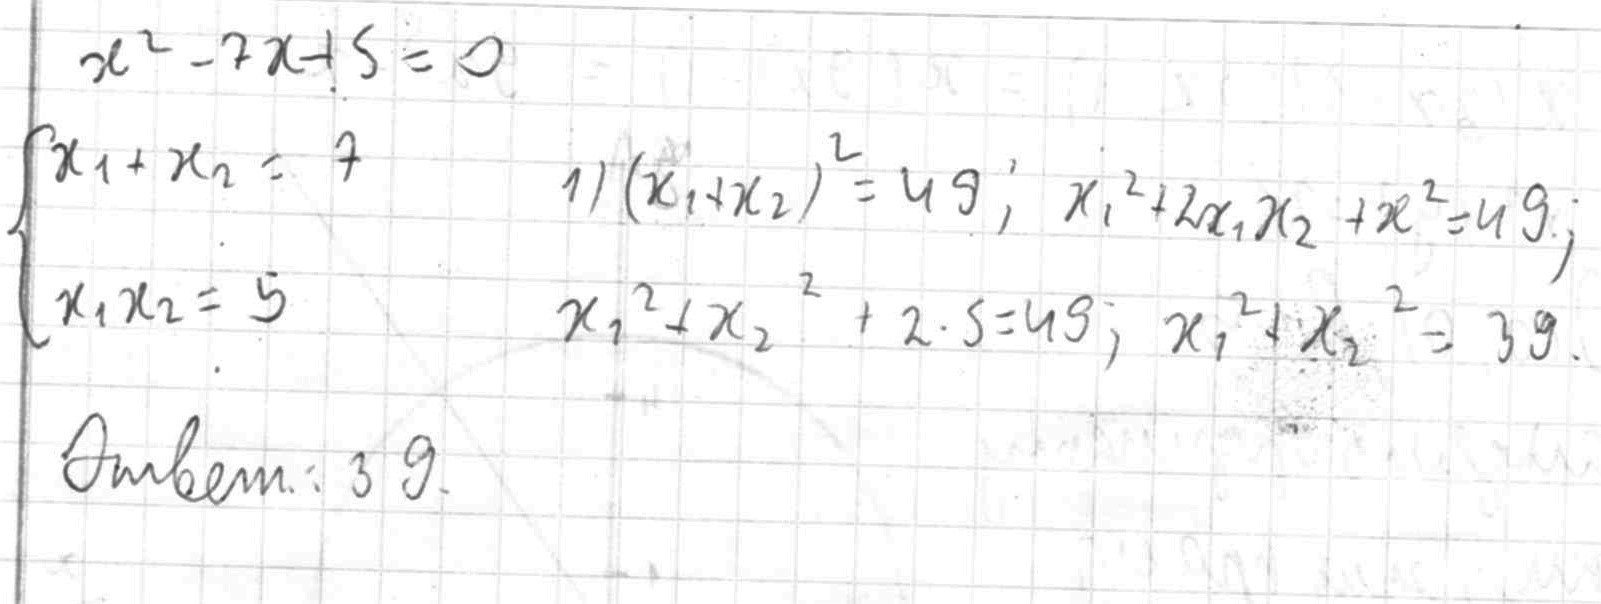 x² - 7x + 5 = 0
x₁ + x₂ = 7
x₁x₂ = 5
1) (x₁+x₂)² = 49; x₁² + 2x₁x₂ + x² = 49;
x₁² + x₂² + 2·5 = 49; x₁² + x₂² = 39.
Ответ: 39.